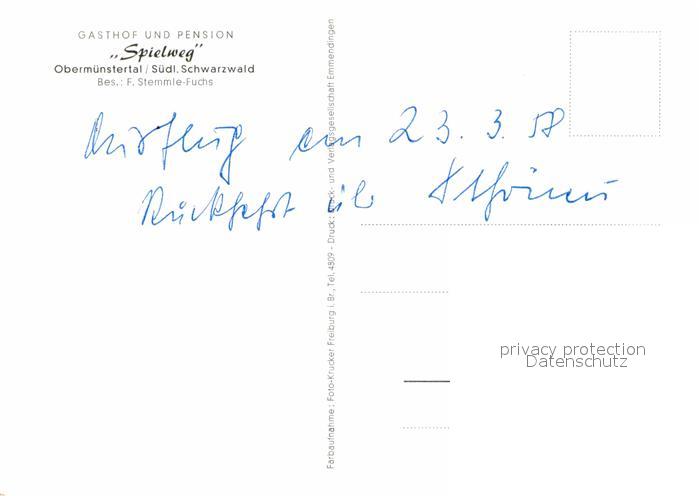 GASTHOF UND PENSION
„Spielweg”
Obermünstertal / Südl. Schwarzwald
Bes.: F. Stemmle-Fuchs
Ausflug am 23. 3. 58
Rückfahrt üb
Farbaufnahme: Foto-Krucker Freiburg i. Br., Tel. 4809 - Druck: Druck- und Verlagsgesellschaft Emmendingen
privacy protection
Datenschutz